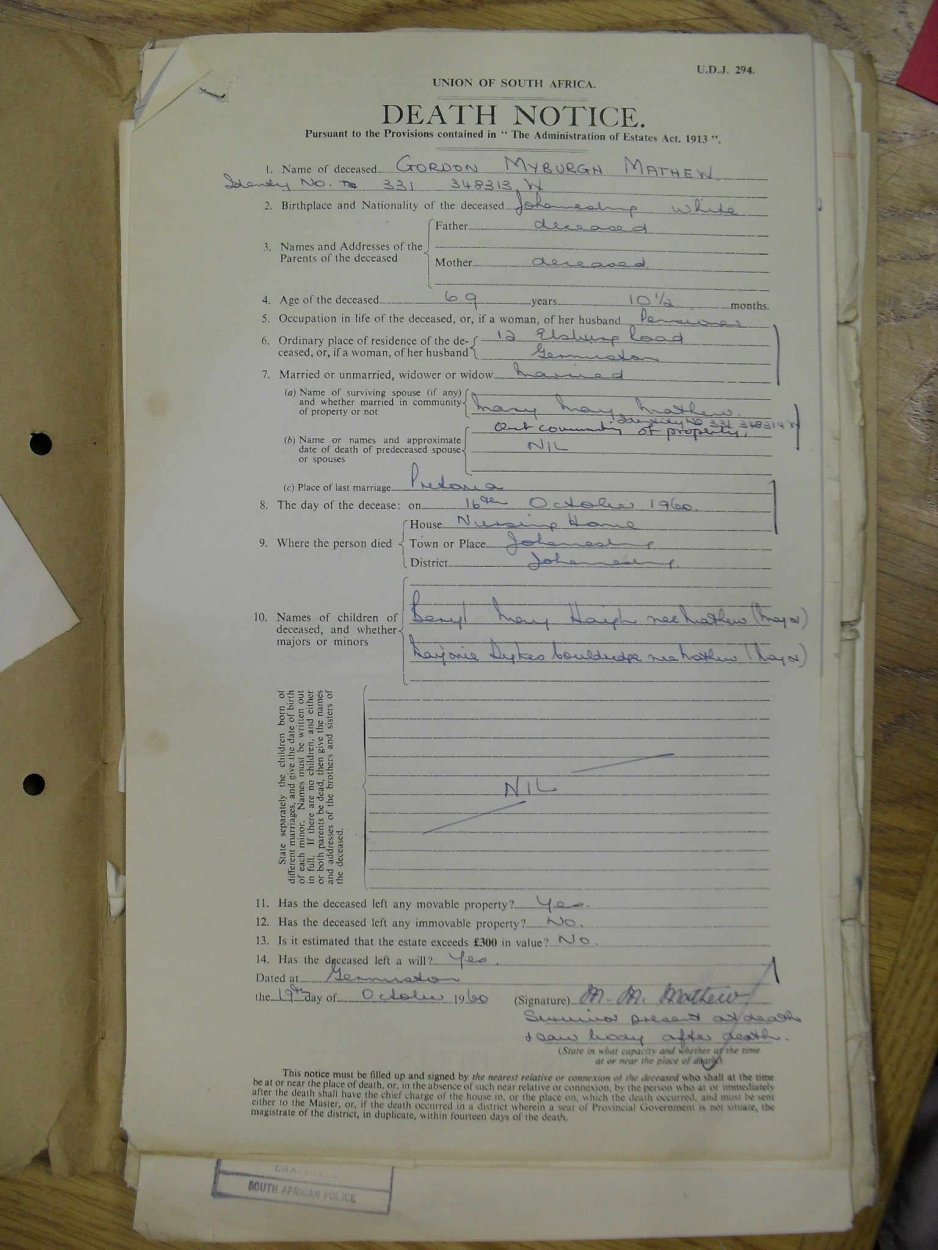 U.D.J. 294.
UNION OF SOUTH AFRICA.
DEATH NOTICE.
Pursuant to the Provisions contained in "The Administration of Estates Act, 1913".
1. Name of deceased GORDON MYBURGH MATHEW
Identity No. 331 348313 W
2. Birthplace and Nationality of the deceased Johannesburg white
3. Names and Addresses of the Parents of the deceased
Father deceased
Mother deceased
4. Age of the deceased 69 years 10½ months.
5. Occupation in life of the deceased, or, if a woman, of her husband Pensioner
6. Ordinary place of residence of the deceased, or, if a woman, of her husband 12 Elsburg Road
Germiston
7. Married or unmarried, widower or widow married
(a) Name of surviving spouse (if any) and whether married in community of property or not
Mary May Mathew
Identity No 331 348314 W
out community of property,
(b) Name or names and approximate date of death of predeceased spouse or spouses
NIL
(c) Place of last marriage Pretoria
8. The day of the decease: on 16th October 1960
9. Where the person died
House Nursing Home
Town or Place Johannesburg
District Johannesburg
10. Names of children of deceased, and whether majors or minors
Beryl Mary Haigh nee Mathew (Major)
Marjorie Dykes Bouldridge nee Mathew (Major)
State separately the children born of
different marriages, and give the date of birth
of each minor. Names must be written out
in full. If there are no children, and either
or both parents be dead, then give the names
and addresses of the brothers and sisters of
the deceased.
NIL
11. Has the deceased left any movable property? Yes.
12. Has the deceased left any immovable property? No.
13. Is it estimated that the estate exceeds £300 in value? No.
14. Has the deceased left a will? Yes.
Dated at Germiston
the 19th day of October 1960 (Signature) M. M. Mathew
Survivor present at death
& saw body after death.
(State in what capacity and whether at the time
at or near the place of death)
This notice must be filled up and signed by the nearest relative or connexion of the deceased who shall at the time
be at or near the place of death, or, in the absence of such near relative or connexion, by the person who at or immediately
after the death shall have the chief charge of the house in, or the place on, which the death occurred, and must be sent
either to the Master, or, if the death occurred in a district wherein a seat of Provincial Government is not situate, the
magistrate of the district, in duplicate, within fourteen days of the death.
SOUTH AFRICAN POLICE